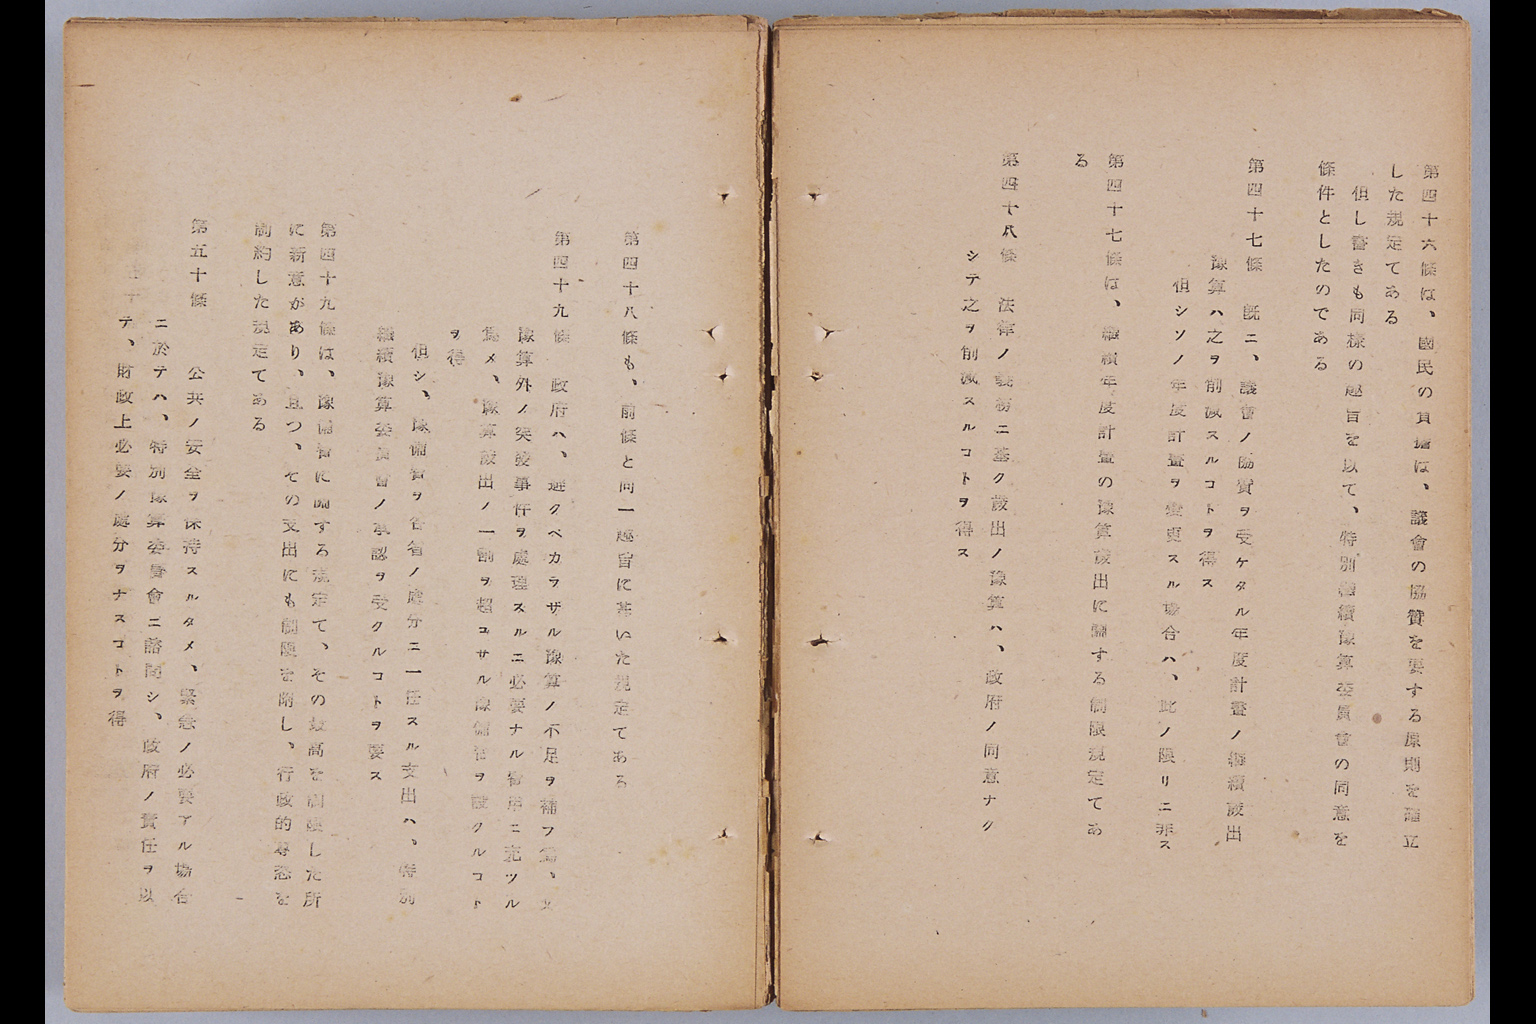 第四十六條は、國民の負擔は、議會の協贊を要する原則を確立
した規定てある
但し書きも同樣の趣旨を以て、特別繼續豫算委員會の同意を
條件としたのである
第四十七條　既ニ、議會ノ協贊ヲ受ケタル年度計畫ノ繼續歲出
豫算ハ之ヲ削減スルコトヲ得ス
但シソノ年度計畫ヲ變更スル塲合ハ、此ノ限リニ非ス
第四十七條は、繼續年度計畫の豫算歲出に關する制限規定てあ
る
第四十八條　法律ノ義務ニ基ク歲出ノ豫算ハ、政府ノ同意ナク
シテ之ヲ削減スルコトヲ得ス
第四十八條も、前條と同一趣旨に基いた規定てある
第四十九條　政府ハ、避クベカラザル豫算ノ不足ヲ補フ爲、又
豫算外ノ突發事件ヲ處理スルニ必要ナル費用ニ充ツル
爲メ、豫算歲出ノ一割ヲ超コサル豫備費ヲ設クルコト
ヲ得
但シ、豫備費ヲ各省ノ處分ニ一任スル支出ハ、特別
繼續豫算委員會ノ承認ヲ受クルコトヲ要ス
第四十九條は、豫備費に關する規定て、その最高を制限した所
に新意があり、且つ、その支出にも制限を附し、行政的專恣を
制約した規定てある
第五十條　公共ノ安全ヲ保持スルタメ、緊急ノ必要アル塲合
ニ於テハ、特別豫算委員會ニ諮問シ、政府ノ責任ヲ以
テ、財政上必要ノ處分ヲナスコトヲ得